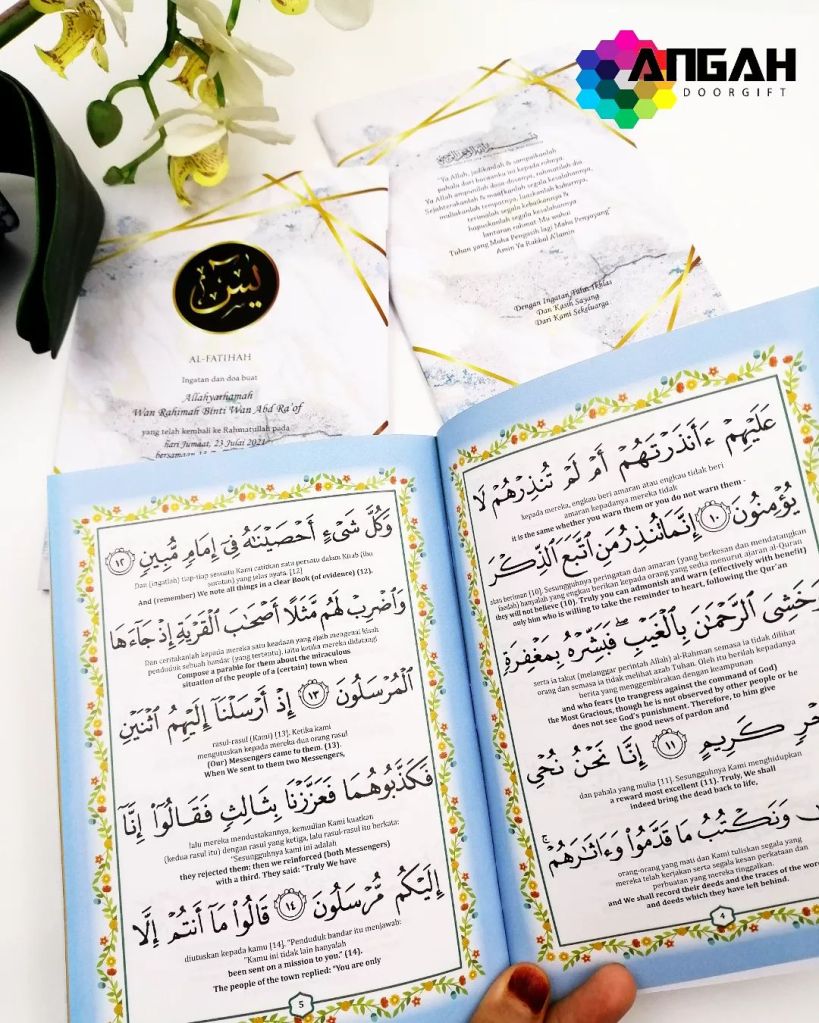 ANGAH
DOORGIFT
"Ya Allah, jadikanlah & sampaikanlah
pahala dari bacaanku ini kepada rohnya.
Ya Allah ampunilah dosa-dosanya, rahmatilah dia
Sejahterakanlah & maafkanlah segala kesalahannya,
muliakanlah tempatnya, luaskanlah kuburnya,
terimalah segala kebaikannya &
hapuskanlah segala kesalahannya
lantaran rahmat Mu wahai
Tuhan yang Maha Pengasih lagi Maha Penyayang"
Amin Ya Rabbal A'lamin
Dengan Ingatan Tulus Ikhlas
Dan Kasih Sayang
Dari Kami Sekeluarga
يس
AL-FATIHAH
Ingatan dan doa buat
Allahyarhamah
Wan Rahimah Binti Wan Abd Ra'of
yang telah kembali ke Rahmatullah pada
hari Jumaat, 23 Julai 2021
bersamaan
عَلَيْهِمْ ءَأَنذَرْتَهُمْ أَمْ لَمْ تُنذِرْهُمْ لَا
kepada mereka, engkau beri amaran atau engkau tidak beri
amaran kepadanya mereka tidak
it is the same whether you warn them or you do not warn them -
يُؤْمِنُونَ ١٠ إِنَّمَا تُنذِرُ مَنِ اتَّبَعَ الذِّكْرَ
alas beriman [10]. Sesungguhnya peringatan dan amaran (yang berkesan dan mendatangkan
faedah) hanyalah yang engkau berikan kepada orang yang sedia menurut ajaran al-Quran
they will not believe (10). Truly you can admonish and warn (effectively with benefit)
only him who is willing to take the reminder to heart, following the Qur'an
وَخَشِيَ الرَّحْمَٰنَ بِالْغَيْبِ ۖ فَبَشِّرْهُ بِمَغْفِرَةٍ
serta ia takut (melanggar perintah Allah) al-Rahman semasa ia tidak dilihat
orang dan semasa ia tidak melihat azab Tuhan. Oleh itu berilah kepadanya
berita yang menggembirakan dengan keampunan
and who fears (to trangress against the command of God)
the Most Gracious, though he is not observed by other people or he
does not see God's punishment. Therefore, to him give
the good news of pardon and.
جْرٍ كَرِيمٍ ١١ إِنَّا نَحْنُ نُحْيِ
dan pahala yang mulia [11]. Sesungguhnya Kami menghidupkan
a reward most excellent (11). Truly, We shall
indeed bring the dead back to life,
وَنَكْتُبُ مَا قَدَّمُوا وَءَاثَارَهُمْ ۚ
orang-orang yang mati dan Kami tuliskan segala yang
mereka telah kerjakan serta segala kesan perkataan dan
perbuatan yang mereka tinggalkan.
and We shall record their deeds and the traces of the word
and deeds which they have left behind.
4
وَكُلَّ شَيْءٍ أَحْصَيْنَاهُ فِي إِمَامٍ مُّبِينٍ ١٢
Dan (ingatlah) tiap-tiap sesuatu Kami catitkan satu persatu dalam Kitab (Ibu
suratan) yang jelas nyata. [12]
And (remember) We note all things in a clear Book (of evidence) (12).
وَاضْرِبْ لَهُم مَّثَلًا أَصْحَابَ الْقَرْيَةِ إِذْ جَاءَهَا
Dan ceritakanlah kepada mereka satu keadaan yang ajaib mengenai kisah
penduduk sebuah bandar (yang tertentu), iaitu ketika mereka didatangi
Compose a parable for them about the miraculous
situation of the people of a (certain) town when
الْمُرْسَلُونَ ١٣ إِذْ أَرْسَلْنَا إِلَيْهِمُ اثْنَيْنِ
rasul-rasul (Kami) [13]. Ketika kami
mengutuskan kepada mereka dua orang rasul
(Our) Messengers came to them. (13).
When We sent to them two Messengers,
فَكَذَّبُوهُمَا فَعَزَّزْنَا بِثَالِثٍ فَقَالُوا إِنَّا
lalu mereka mendustakannya, kemudian Kami kuatkan
(kedua rasul itu) dengan rasul yang ketiga, lalu rasul-rasul itu berkata:
"Sesungguhnya kami ini adalah
they rejected them; then we reinforced (both Messengers)
with a third. They said: "Truly We have
إِلَيْكُم مُّرْسَلُونَ ١٤ قَالُوا مَا أَنتُمْ إِلَّا
diutuskan kepada kamu [14]. "Penduduk bandar itu menjawab:
"Kamu ini tidak lain hanyalah
been sent on a mission to you." (14).
The people of the town replied: "You are only
5